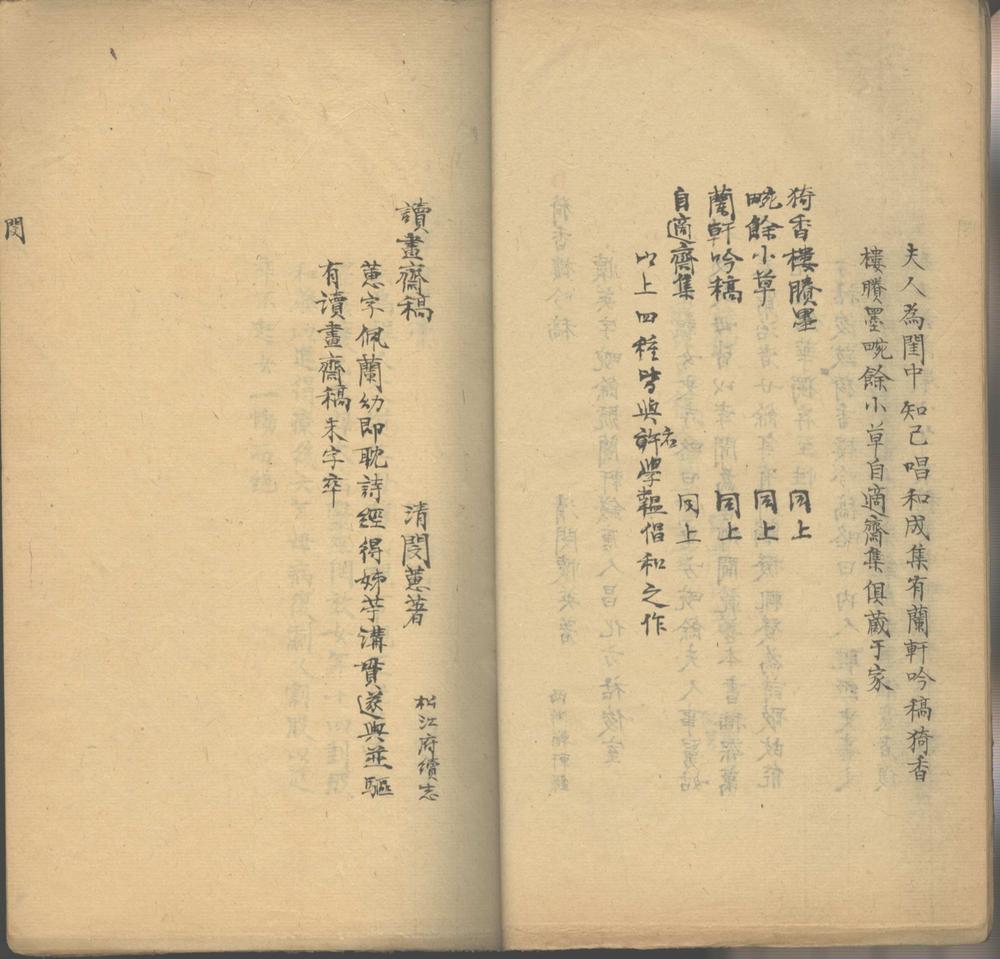 夫人為閨中知己唱和成集有蘭軒吟稿猗香
樓賸墨畹餘小草自適齋集俱蔵于家
猗香樓賸墨 同上
畹餘小草 同上
蘭軒吟稿 同上
自適齋集 同上
以上四種皆與許學韞倡和之作
名
讀畫齋稿 清閔蕙著 松江府續志
蕙字佩蘭幼即耽詩經得姊芋溝貫遂與並驅
有讀畫齋稿未字卒
閔